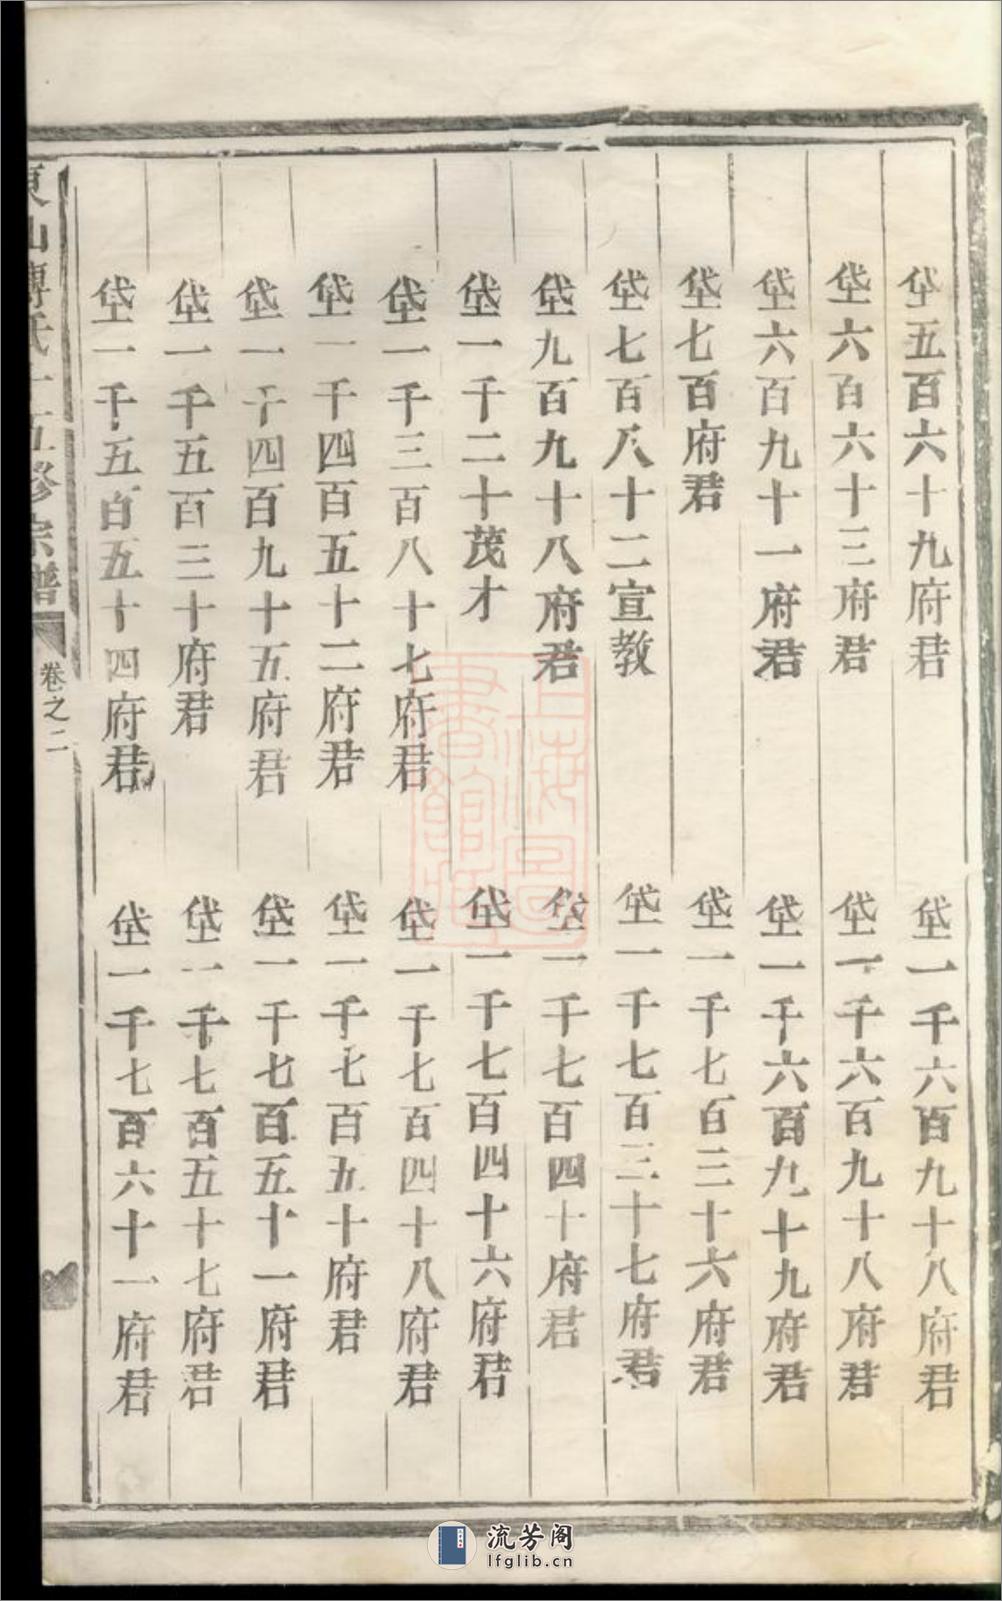 垡五百六十九府君
垡六百六十三府君
垡六百九十一府君
垡七百府君
垡七百八十二宣教
垡九百九十八府君
垡一千二十茂才
垡一千三百八十七府君
垡一千四百五十二府君
垡一千四百九十五府君
垡一千五百三十府君
垡一千五百五十四府君
垡一千六百九十八府君
垡一千六百九十八府君
垡一千六百九十九府君
垡一千七百三十六府君
垡一千七百三十七府君
垡一千七百四十府君
垡一千七百四十六府君
垡一千七百四十八府君
垡一千七百五十府君
垡一千七百五十一府君
垡一千七百五十七府君
垡一千七百六十一府君
東山傅氏十五修宗譜
卷之二
上海圖書館藏
流芳阁
lfglib.cn